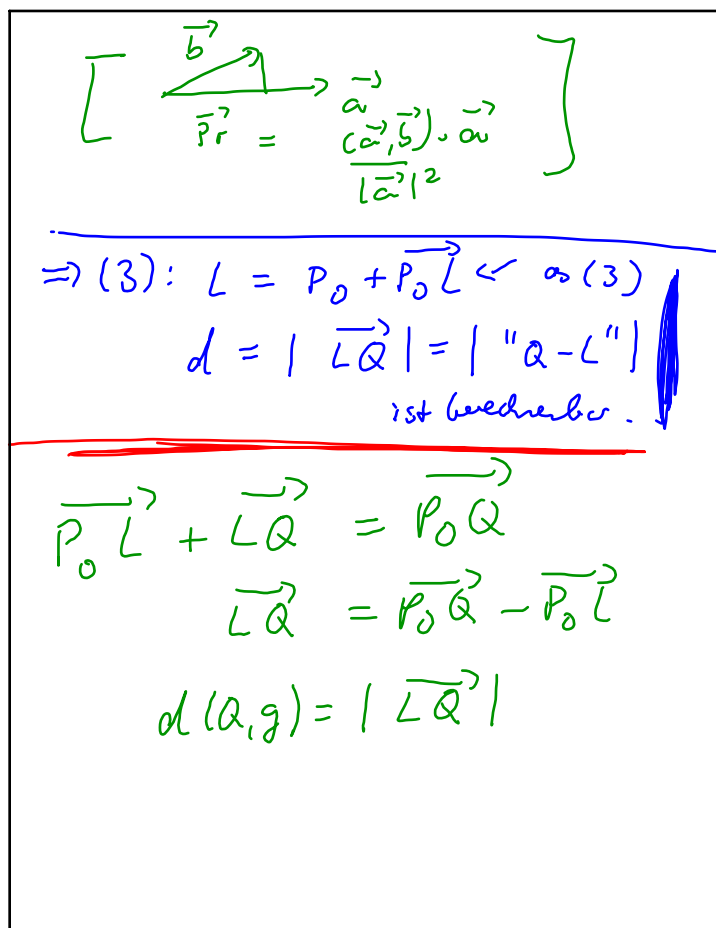 [ b⃗ a⃗ ]
P⃗r = (a⃗,b⃗)·a⃗ / |a⃗|²
⇒ (3): L = P₀ + P₀L⃗ ← (3)
d = | LQ⃗ | = | "Q - L" |
ist berechenbar.
P₀L⃗ + LQ⃗ = P₀Q⃗
LQ⃗ = P₀Q⃗ - P₀L⃗
d(Q,g) = | LQ⃗ |